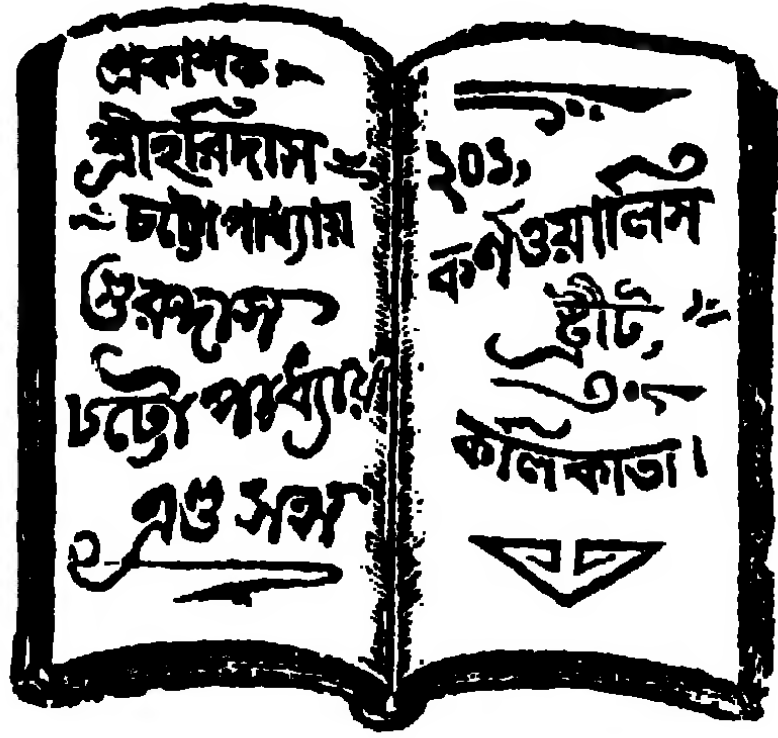 প্রকাশক
শ্রীহরিদাস
চট্টোপাধ্যায়
গুরুদাস
চট্টোপাধ্যায়
এণ্ড সন্স
২০১,
কর্নওয়ালিস
ষ্ট্রীট,
কলিকাতা।